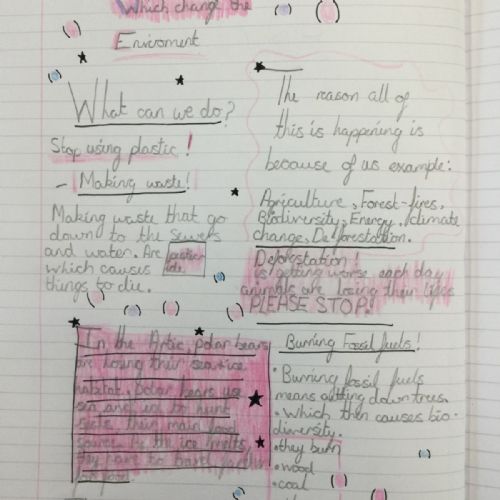 Which change the
Enviroment
What can we do?
Stop using plastic!
- Making waste!
Making waste that go
down to the sewers
and water. Are
which causes
things to die.
In the Artic, polar bears
are losing their sea ice
habitat. Polar bears use
sea and ice to hunt
seals their main food
source. As the ice melts
they have to travel further
for food
The reason all of
this is happening is
because of us example:
Agriculture, Forest-fires,
Biodiversity, Energy, climate
change, Deforestation.
Deforestation!
is getting worse each day
animals are losing their lifes
PLEASE STOP.
Burning Fossil fuels!
• Burning fossil fuels
means cutting down trees.
• Which then causes bio-
diversity.
• they burn
• wood
• coal